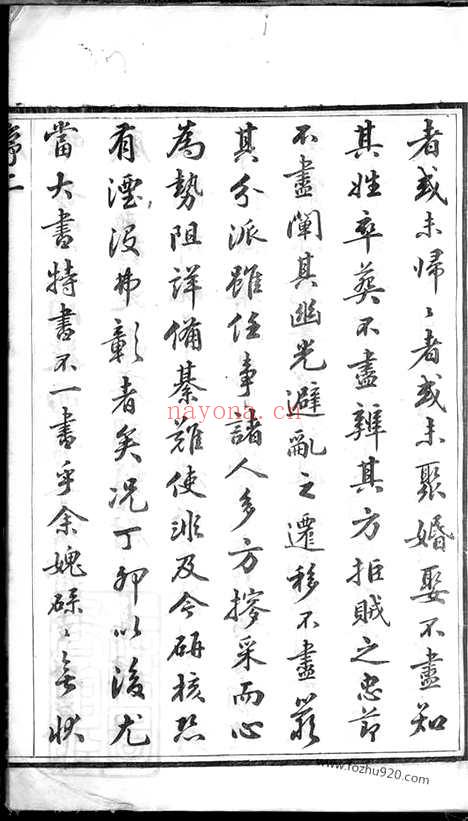 者或未歸〻者或未聚婚娶不盡知
其姓卒葬不盡辨其方拒賊之忠節
不盡闡其幽光避亂之遷移不盡
其分派雖任事諸人多方採而心
為勢阻詳備綦難使非及今研核恐
有湮沒弗彰者矣況丁卯以後尤
當大書特書不一書乎余媿碌〻無狀
序二
nayona.cn
www.fozhu920.com